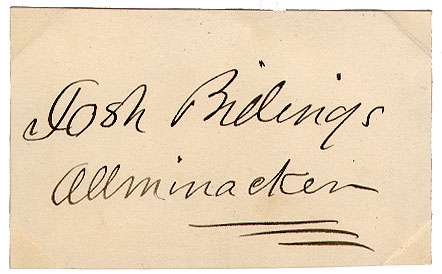 Josh Billings
Allminacker